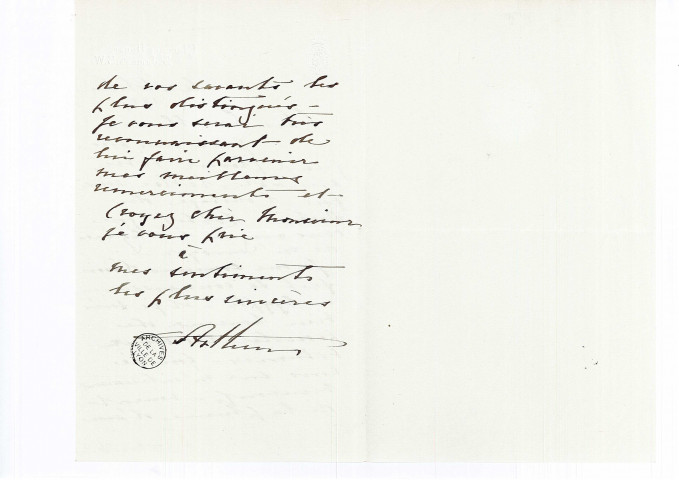 de vos savants les
plus distingués -
je vous serai très
reconnaissant de
lui faire parvenir
mes meilleurs
remerciements et
Croyez cher Monsieur
je vous prie
à
mes sentiments
les plus sincères
Arthur
ARCHIVES
DE LA
VILLE DE
LYON